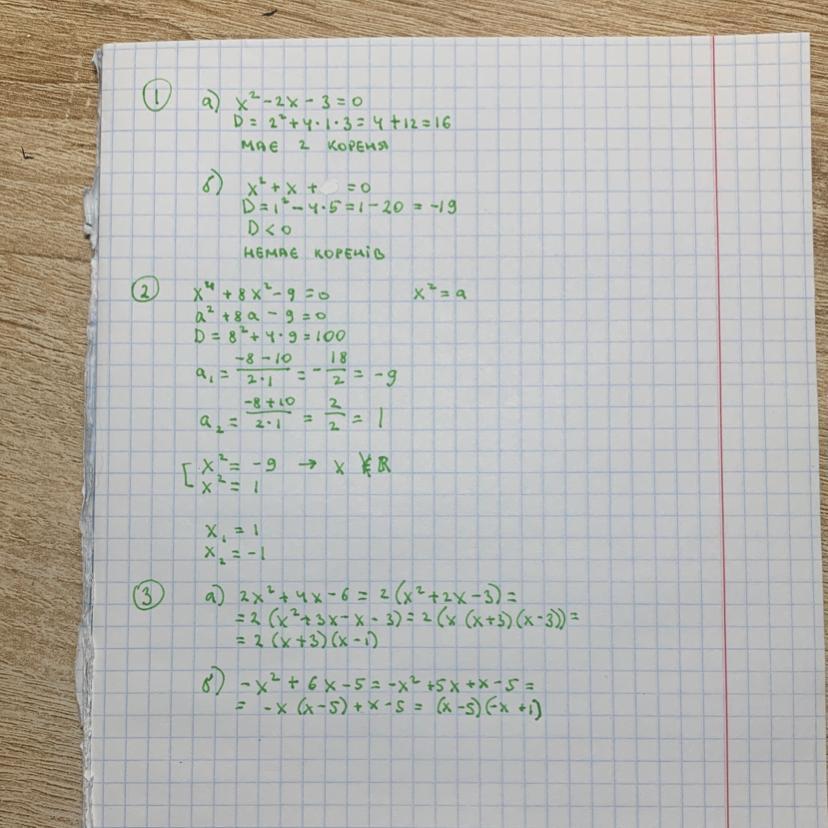 ① а) x² - 2x - 3 = 0
D = 2² + 4 · 1 · 3 = 4 + 12 = 16
МАЄ 2 КОРЕНЯ
б) x² + x + = 0
D = 1² - 4 · 5 = 1 - 20 = -19
D < 0
НЕМАЄ КОРЕНІВ
② x⁴ + 8x² - 9 = 0 x² = a
a² + 8a - 9 = 0
D = 8² + 4 · 9 = 100
a₁ = (-8 - 10)/(2 · 1) = - 18/2 = -9
a₂ = (-8 + 10)/(2 · 1) = 2/2 = 1
[ x² = -9 → x ∉ R
x² = 1
x₁ = 1
x₂ = -1
③ а) 2x² + 4x - 6 = 2(x² + 2x - 3) =
= 2(x² + 3x - x - 3) = 2(x(x+3)(x-3)) =
= 2(x+3)(x-1)
б) -x² + 6x - 5 = -x² + 5x + x - 5 =
= -x(x-5) + x - 5 = (x-5)(-x+1)